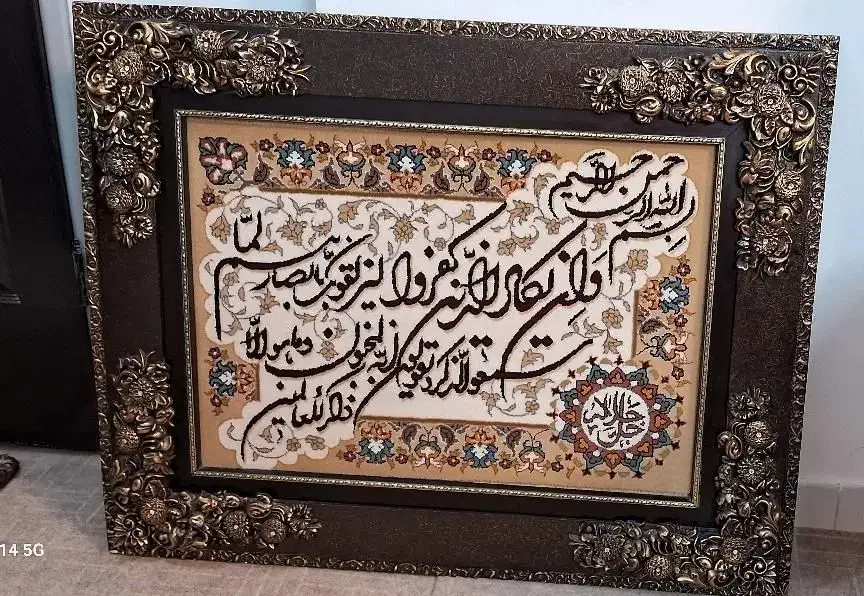 بسم الله الرحمن الرحیم
وان یکاد الذین کفروا لیزلقونک بابصارهم لما
سمعوا الذکر ویقولون انه لمجنون وما هو الا
ذکر للعالمین
جل جلاله
14 5G